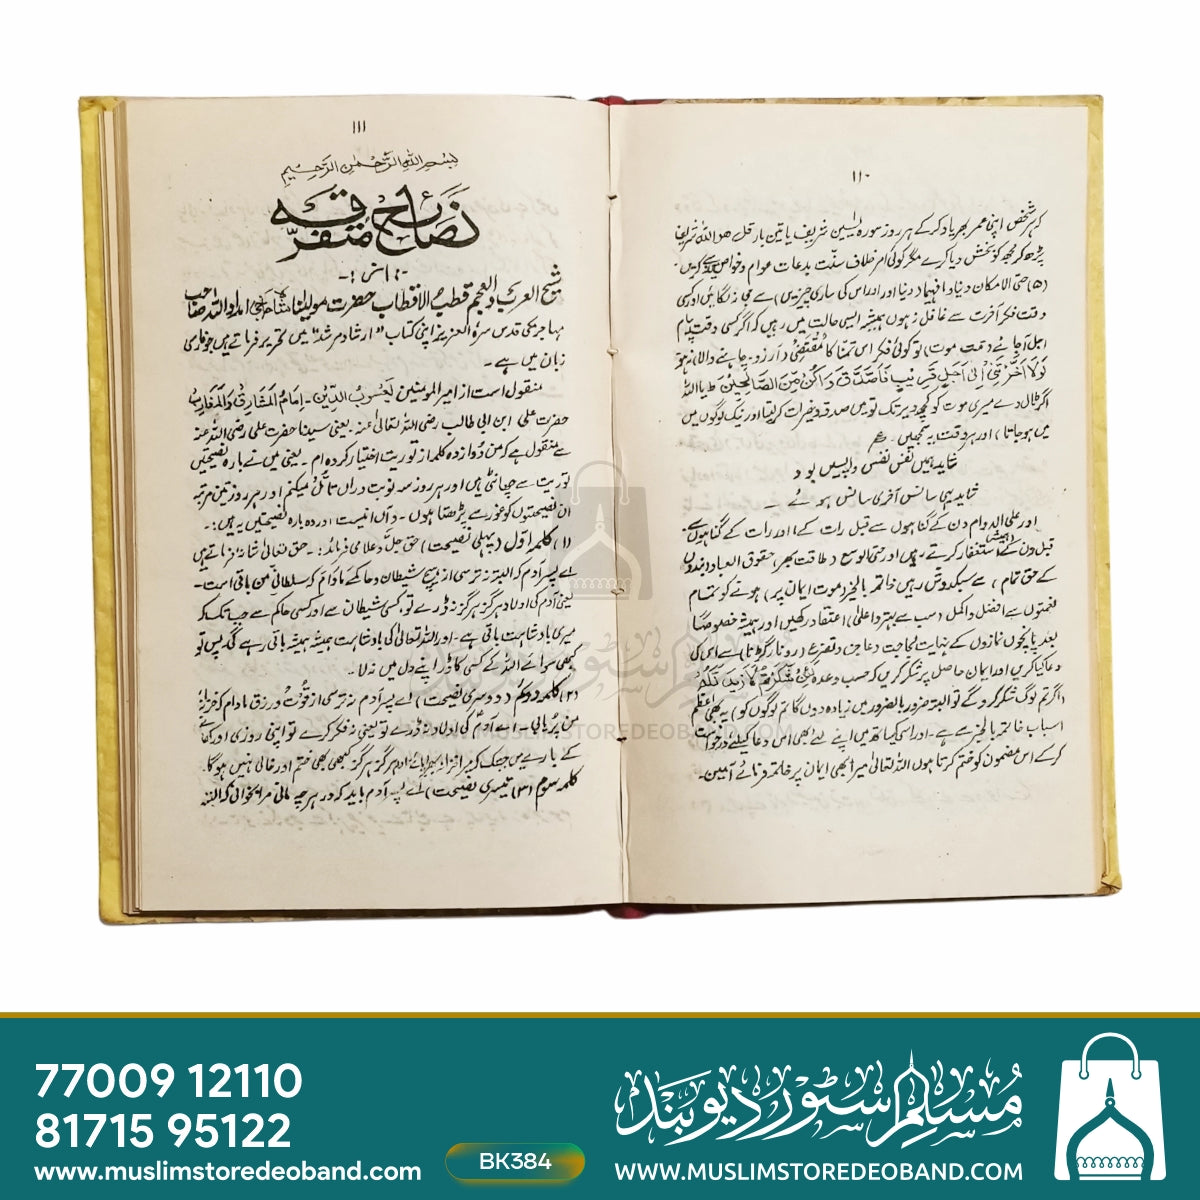 ۱۱۰
کہ ہر شخص اپنی عمر بھر یاد کر کے ہر روز سورہ یٰسین شریف یا تین بار قل ھو اللہ شریف
پڑھ کر مجھ کو بخش دیا کرے مگر کوئی امر خلاف سنّت بدعات عوام و خواص سے کریں۔
(۵) حتی الامکان دنیا و مافیہا (دنیا اور اس کی ساری چیزیں) سے جی نہ لگائیں اور کسی
وقت فکر آخرت سے غافل نہ ہوں ہمیشہ ایسی حالت میں رہیں کہ اگر کسی وقت پیام
اجل آجائے (وقت موت) تو کوئی فکر اس تمنا کا مُقتضی (آرزو چاہنے والا) نہ ہو
لَوْلَا اَخَّرْتَنِیْ اِلٰی اَجَلٍ قَرِیْبٍ فَاَصَّدَّقَ وَاَکُنْ مِّنَ الصَّالِحِیْنَ (یا اللہ
اگر ٹال دے میری موت کو کچھ دیر تک تو میں صدقہ و خیرات کر لیتا اور نیک لوگوں میں
میں ہو جاتا) اور ہر وقت یہ سمجھیں۔ ع
شاید ہمیں نفس نفس واپسیں بود
شاید یہی سانس آخری سانس ہو ئے ۔
اور علی الدوام دن کے گناہوں سے قبل رات کے، اور رات کے گناہوں سے
قبل دن کے استغفار کرتے رہیں اور حتی الوسع (طاقت بھر) حقوق العباد (بندوں
کے حق تمام) سے سبکدوش رہیں خاتمہ بالخیر (موت ایمان پر) ہونے کو تمام
نعمتوں سے افضل و اکمل (سب سے بہتر و اعلیٰ) اعتقاد رکھیں اور ہمیشہ خصوصًا
بعد پانچوں نمازوں کے نہایت لجاجت و عاجزی و تضرع (رونا و گڑگڑانا) سے اس کی
دعا کیا کریں اور ایمان حاصل پر شکر کریں کہ حسب وعدہ لَئِنْ شَکَرْتُمْ لَاَزِیْدَنَّکُمْ
(اگر تم لوگ شکر کرو گے تو البتہ ضرور بالضرور میں زیادہ دوں گا تم لوگوں کو) یہ بھی اعظم
اسباب خاتمہ بالخیر سے ہے۔ اور اسی کیساتھ میں اپنے لئے بھی اس دعا کیلئے درخواست
کر کے اس مضمون کو ختم کرتا ہوں اللہ تعالیٰ میرا بھی ایمان پر خاتمہ فرمائے آمین۔
۱۱۱
بِسْمِ اللهِ الرَّحْمٰنِ الرَّحِیْمِ
نَصَائِح مُتفرّقه
شیخ العرب و العجم قطب الاقطاب حضرت مولینا شاہ حاجی امداد اللہ صاحب
مہاجر مکی قدس سرہ العزیز اپنی کتاب "ارشاد مرشد" میں تحریر فرماتے ہیں جو فارسی
زبان میں ہے۔
منقول است از امیر المومنین یَعْسُوْبُ الدِّیْن۔ اِمَامُ الْمَشَارِقِ وَالْمَغَارِب
حضرت علی ابن ابی طالب رضی اللہ تعالیٰ عنہ۔ یعنی سیدنا حضرت علی رضی اللہ عنہ
سے منقول ہے کہ من دوازدہ کلمہ از توریت اختیار کردہ ام۔ یعنی میں نے بارہ نصیحتیں
توریت سے چھانٹی ہیں اور ہر روز سہ نوبت دراں تامّل میکنم اور ہر روز تین مرتبہ
ان نصیحتوں کو غور سے پڑھتا ہوں۔ و آں انیست اور وہ بارہ نصیحتیں یہ ہیں:۔
(۱) کلمہ اوّل (پہلی نصیحت) حق جلّ و علا می فرمائد:۔ حق تعالیٰ شانہ فرماتے ہیں
اے پسر آدم کہ البتہ نہ ترسی از ہیچ شیطان و حاکمے مادام کہ سلطانیِ من باقی است۔
یعنی آدم کی اولاد ہرگز ہرگز نہ ڈرے تو، کسی شیطان سے اور کسی حاکم سے جب تک کہ
میری بادشاہت باقی ہے۔ اور اللہ تعالیٰ کی بادشاہت ہمیشہ ہمیشہ باقی رہے گی پس تو
کبھی سوائے اللہ کے کسی کا ڈر اپنے دل میں نہ لا۔
(۲) کلمہ دوم (دوسری نصیحت) اے پسر آدم نہ ترسی از قُوت و رزق مادام کہ خزانۂ
من پُر یابی۔ اے آدم کی اولاد نہ ڈرے تو یعنی نہ فکر کرے تو اپنی روزی اور کھانے
کے بارے میں جبتک کہ میرا خزانہ بھرا پائے اور ہرگز ہرگز کبھی بھی ختم اور خالی نہیں ہوگا۔
کلمہ سوم (۳) (تیسری نصیحت) اے پسر آدم باید کہ در ہر چہ مانی مرا بخوانی کہ البتہ
مسلم سٹور دیوبند
WWW.MUSLIMSTOREDEOBAND.COM
77009 12110
81715 95122
www.muslimstoredeoband.com
BK384
مُسلم سٹور دیوبند
WWW.MUSLIMSTOREDEOBAND.COM